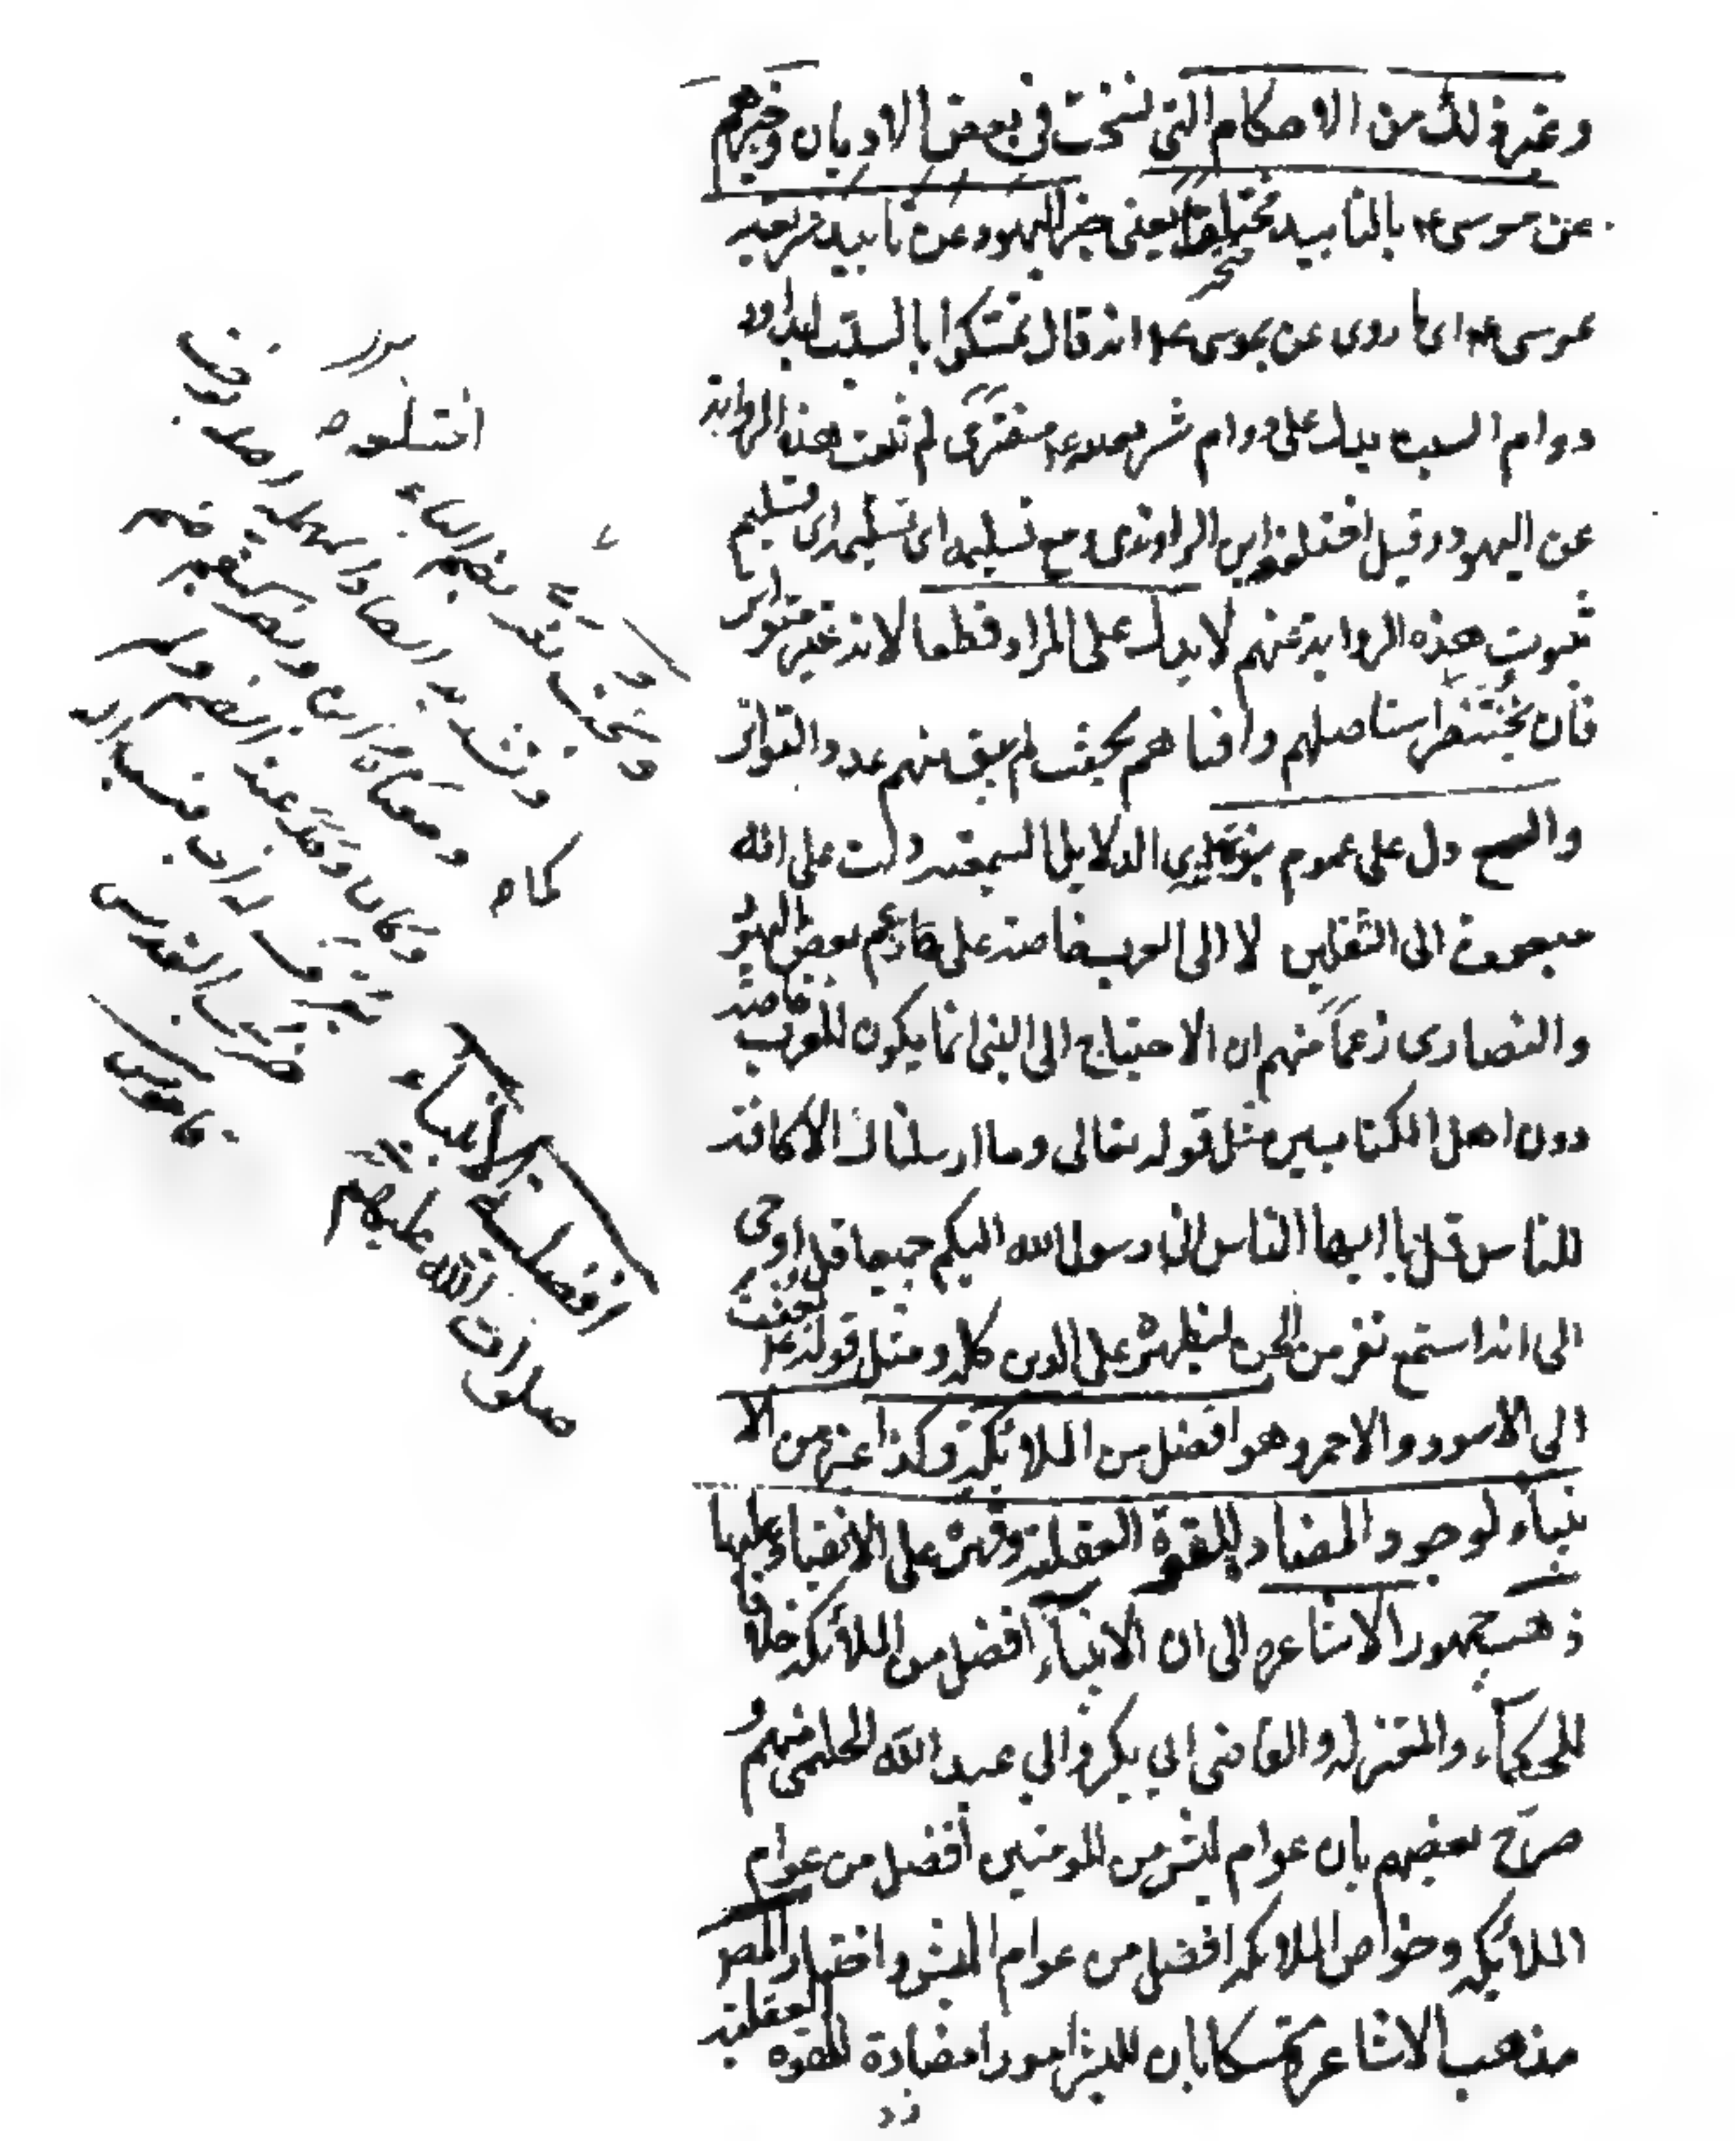 وغير ذلك من الاحكام التي نسخت في بعض الاديان وخبرهم
عن موسى ع م بالتابيد مختلق يعنى خبر اليهود عن تابيد شريعة
موسى ع م اى ما روى عن موسى ع م انه قال تمسكوا بالسبت ابدا و
دوام السبت يدل على دوام شرعه مفترى لم تثبت هذه الرواية
عن اليهود وقيل اختلقه ابن الراوندى ومع تسليمه اى تسليم
ثبوت هذه الرواية عنهم لا يدل على المراد قطعا لانه غير متواتر
فان بختنصر استاصلهم وافناهم بحيث لم يبق منهم عدد التواتر
والسمع دل على عموم نبوته اى الدلايل السمعية دلت على انه
مبعوث الى الثقلين لا الى العرب خاصة على ما زعم بعض اليهود
والنصارى زعما منهم ان الاحتياج الى النبى انما يكون للعرب خاصة
دون اهل الكتابين مثل قوله تعالى وما ارسلناك الا كافة
للناس قل يا ايها الناس انى رسول الله اليكم جميعا قل اوحى
الى انه استمع نفر من الجن ليظهره على الدين كله ومثل قوله ع م بعثت
الى الاسود والاحمر وهو افضل من الملائكة وكذا غيره من الا
نبياء لوجود المضاد للقوة العقلية وقهره على الانقياد عليها
ذهب جمهور الاشاعرة الى ان الانبياء افضل من الملائكة خلافا
للحكماء والمعتزلة والقاضى ابي بكر وابي عبد الله الحليمى منهم و
صرح بعضهم بان عوام البشر من المومنين افضل من عوام
الملائكة وخواص الملائكة افضل من عوام البشر واختيار المص
مذهب الاشاعرة تمسكا بان للبشر امورا مضادة للقوة العقلية
اختلقه
بضم الباء
وتشديد الصاد المهملة اصله بوخت
ومعناه ابن ونصر كبقم صنم
وكان وجد عند الصنم ولم
يعرف له اب فنسب اليه
خرب القدس
قاموس
افضلية الانبياء
صلوات الله عليهم